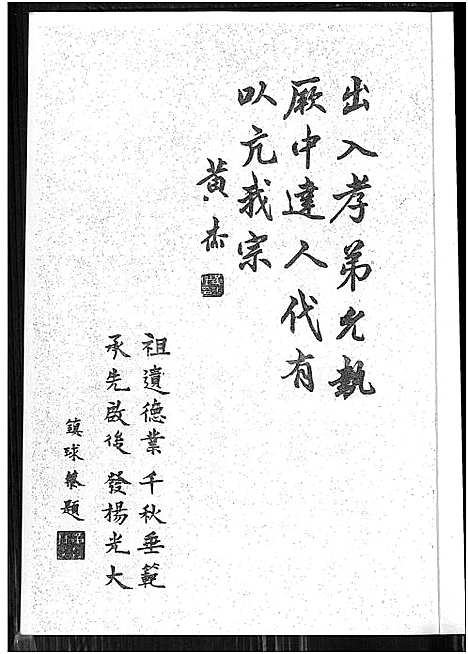 出入孝弟允執
厥中達人代有
以亢我宗
黃杰
祖遺德業千秋垂範
承先啟後發揚光大
鎮球 題